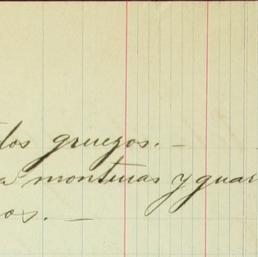 dos gruezos. —
a monturas y guar
os. —